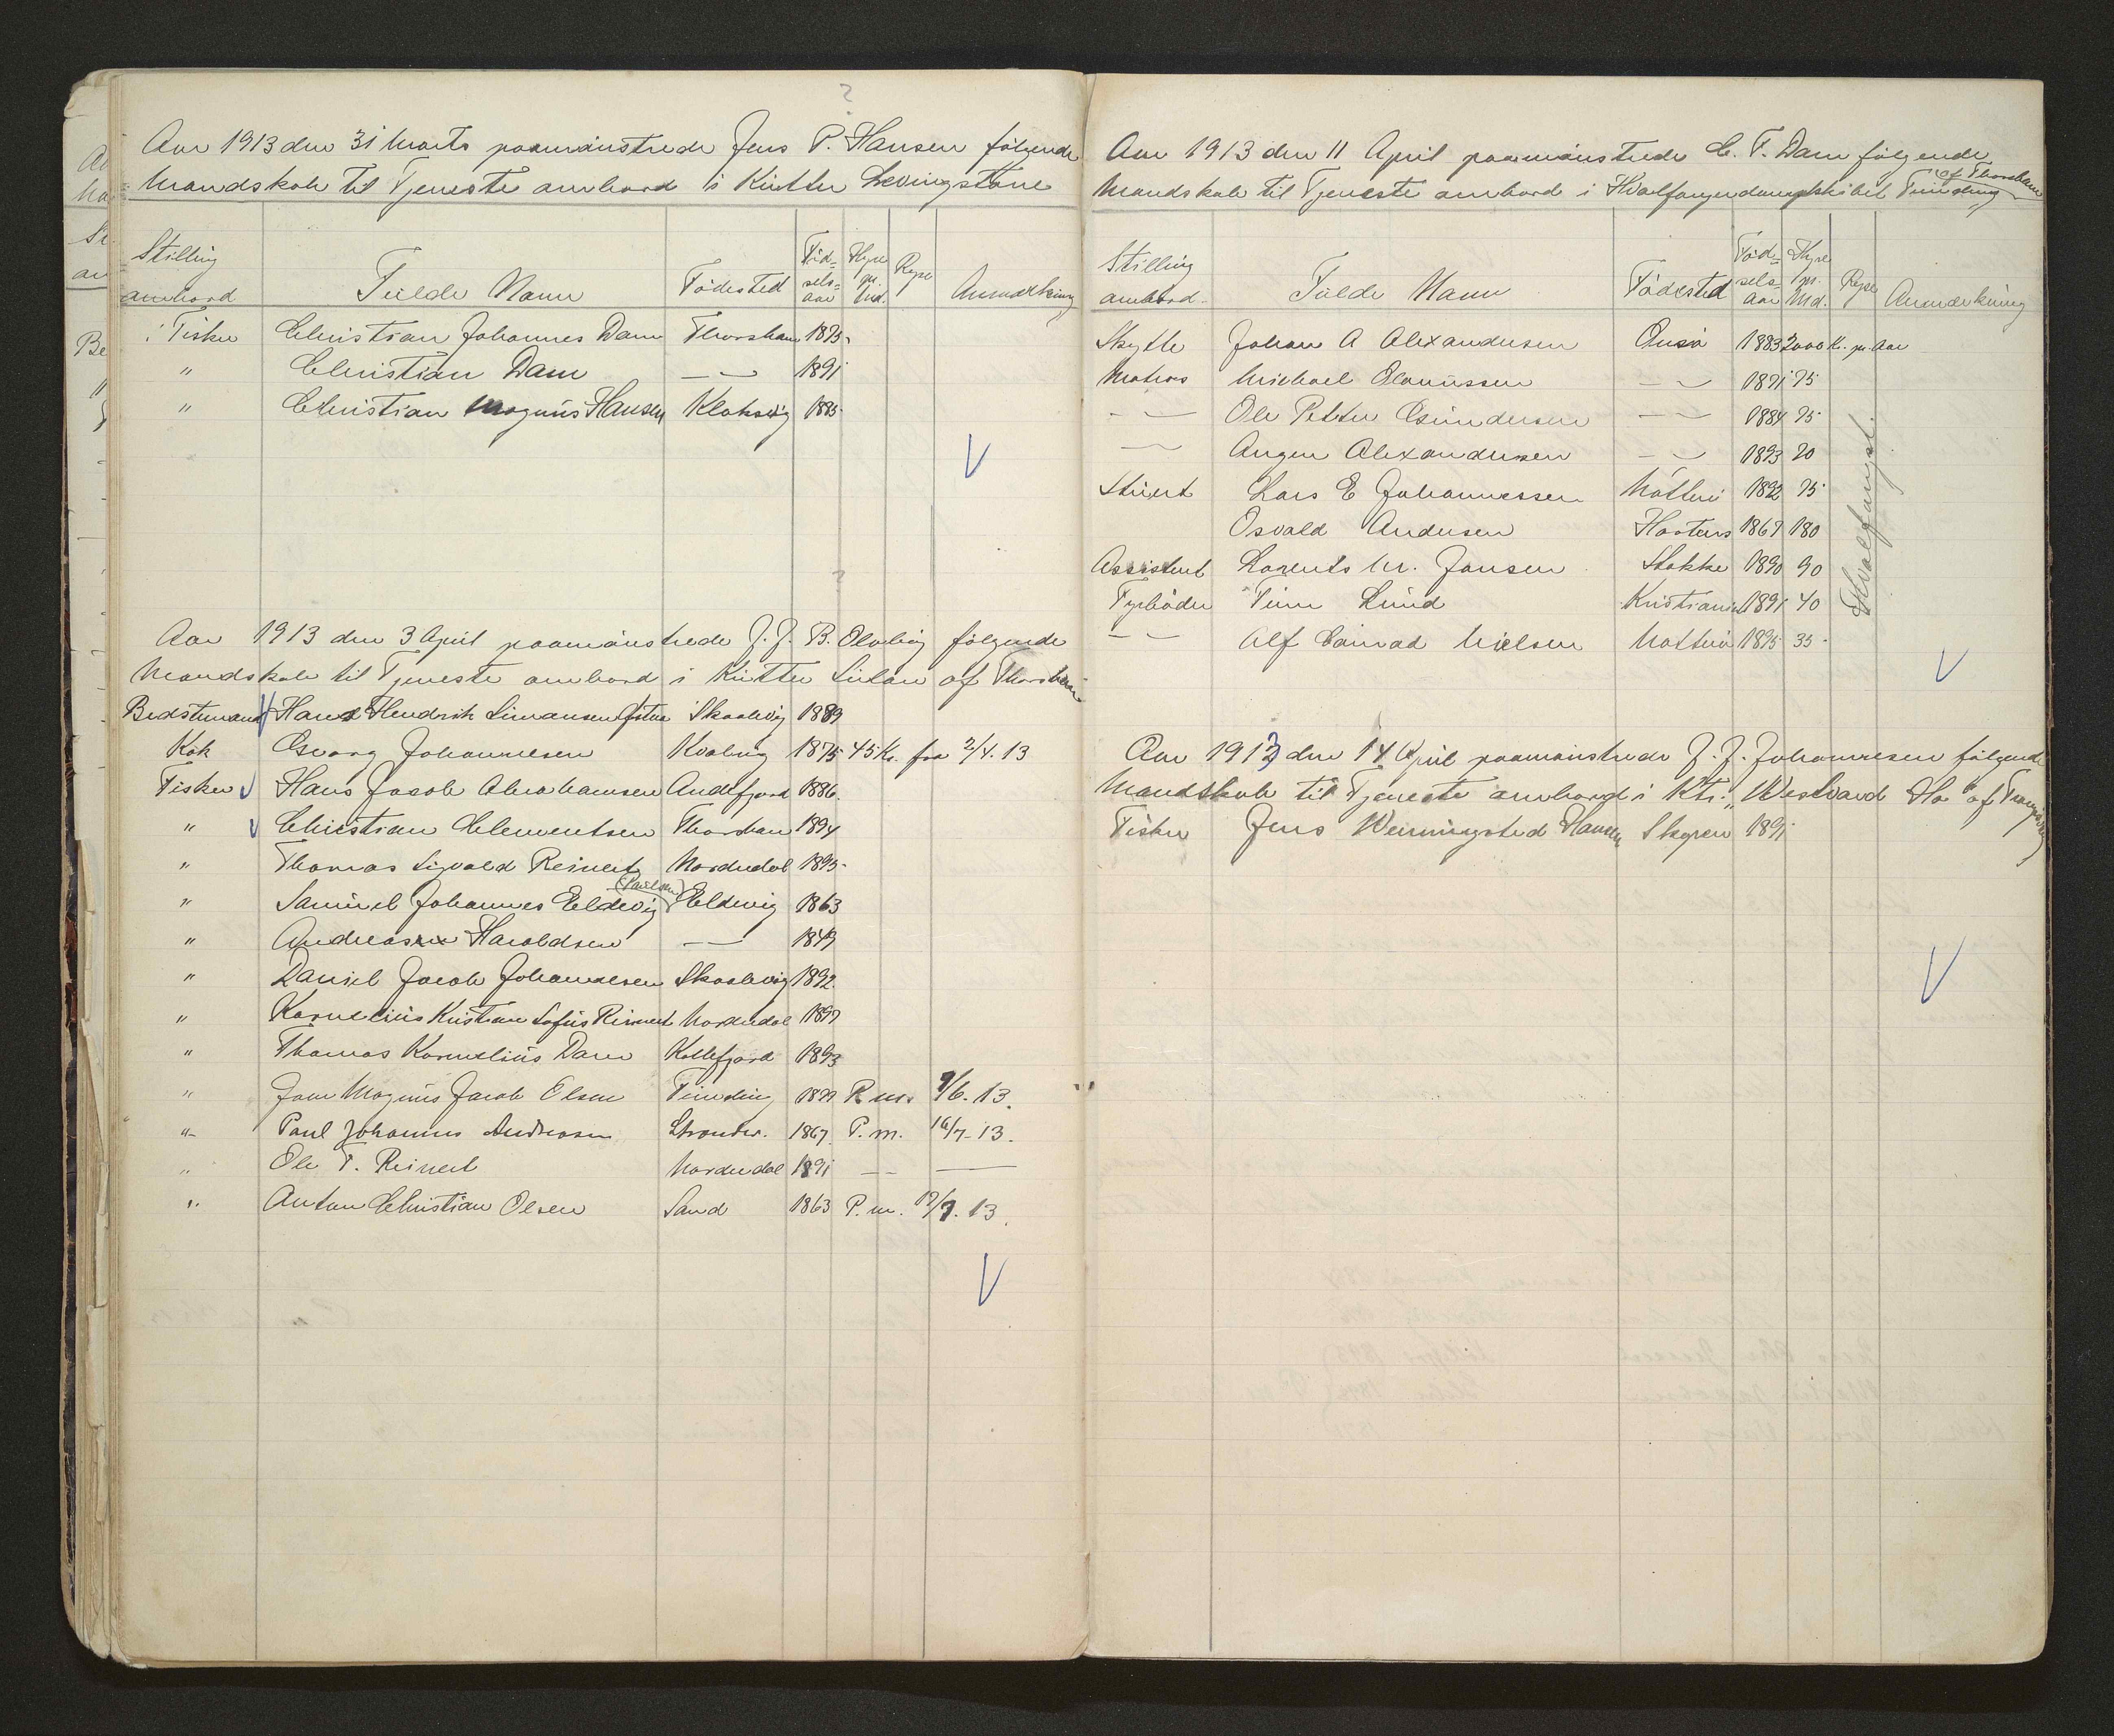 Aar 1913 den 31 Marts paamönstrede Jens P. Hansen følgende
Mandskab til Tjeneste ombord i Kutter Levingstone
Stilling ombord Fulde Navn Födested Föd-sels-aar Hyre pr. Md. Rejse Anmærkning
Fisker Christian Johannes Dam Thorshavn 1895
" Christian Dam — 1891
" Christian Magnus Hansen Klaksvig 1895
Aar 1913 den 3 April paamönstrede J. J. B. følgende
Mandskab til Tjeneste ombord i Kutter af Thorshavn
Bedstemand Hans Hendrik Simonsen Skaalevig 1889
Kok Georg Johannesen Kvalvig 1875 45 Kr. fra 2/4. 13
Fisker Hans Jacob Abrahamsen Andefjord 1886
" Christian Clementsen Thorshavn 1894
" Thomas Sigvald Reinert Nordredal 1895
" Samuel Johannes Eldevig (Poulsen) Eldevig 1863
" Andreas Haraldsen — 1849
" Daniel Jacob Johannesen Skaalevig 1892
" Kornelius Kristian Sofus Reinert Nordredal 1897
" Thomas Kornelius Dam Kollefjord 1893
" Magnus Jacob Olsen Funding 1899 P. m. 9/6. 13.
" Paul Johannes Andreasen Strender. 1867 P. m. 16/7-13.
" Ole T. Reinert Nordredal 1891 — —
" Anton Christian Olsen Sand 1863 P. m. 17/7. 13.
Aar 1913 den 11 April paamönstrede C. F. Dam følgende
Mandskab til Tjeneste ombord i Hvalfangerdampskibet Funding af Thorshavn
Stilling ombord. Fulde Navn Födested Föd-sels-aar Hyre pr. Md. Rejse Anmærkning
Skytte Johan A Alexandersen Onsö 1883 2000 Kr. pr. Aar
Matros Michael Olaussen — 1891 75
— Ole Petter Gundersen — 1884 75
— Alexandersen — 1893 70
Stuert Lars E Johannessen Nötterö 1892 75
Osvald Andersen Hortens 1867 180
Assistent Lorents M. Jansen Stokke 1890 90
Fyrböder Finn Lund Kristiania 1891 40
— Alf Conrad Nielsen Nötterö 1895 35
Hvalfangst.
Aar 1913 den 14 April paamönstrede J. J. Johannesen følgende
Mandskab til Tjeneste ombord i Ktr. "Westward Ho" af
Fisker Jens Wenningsted Hansen Skopen 1891